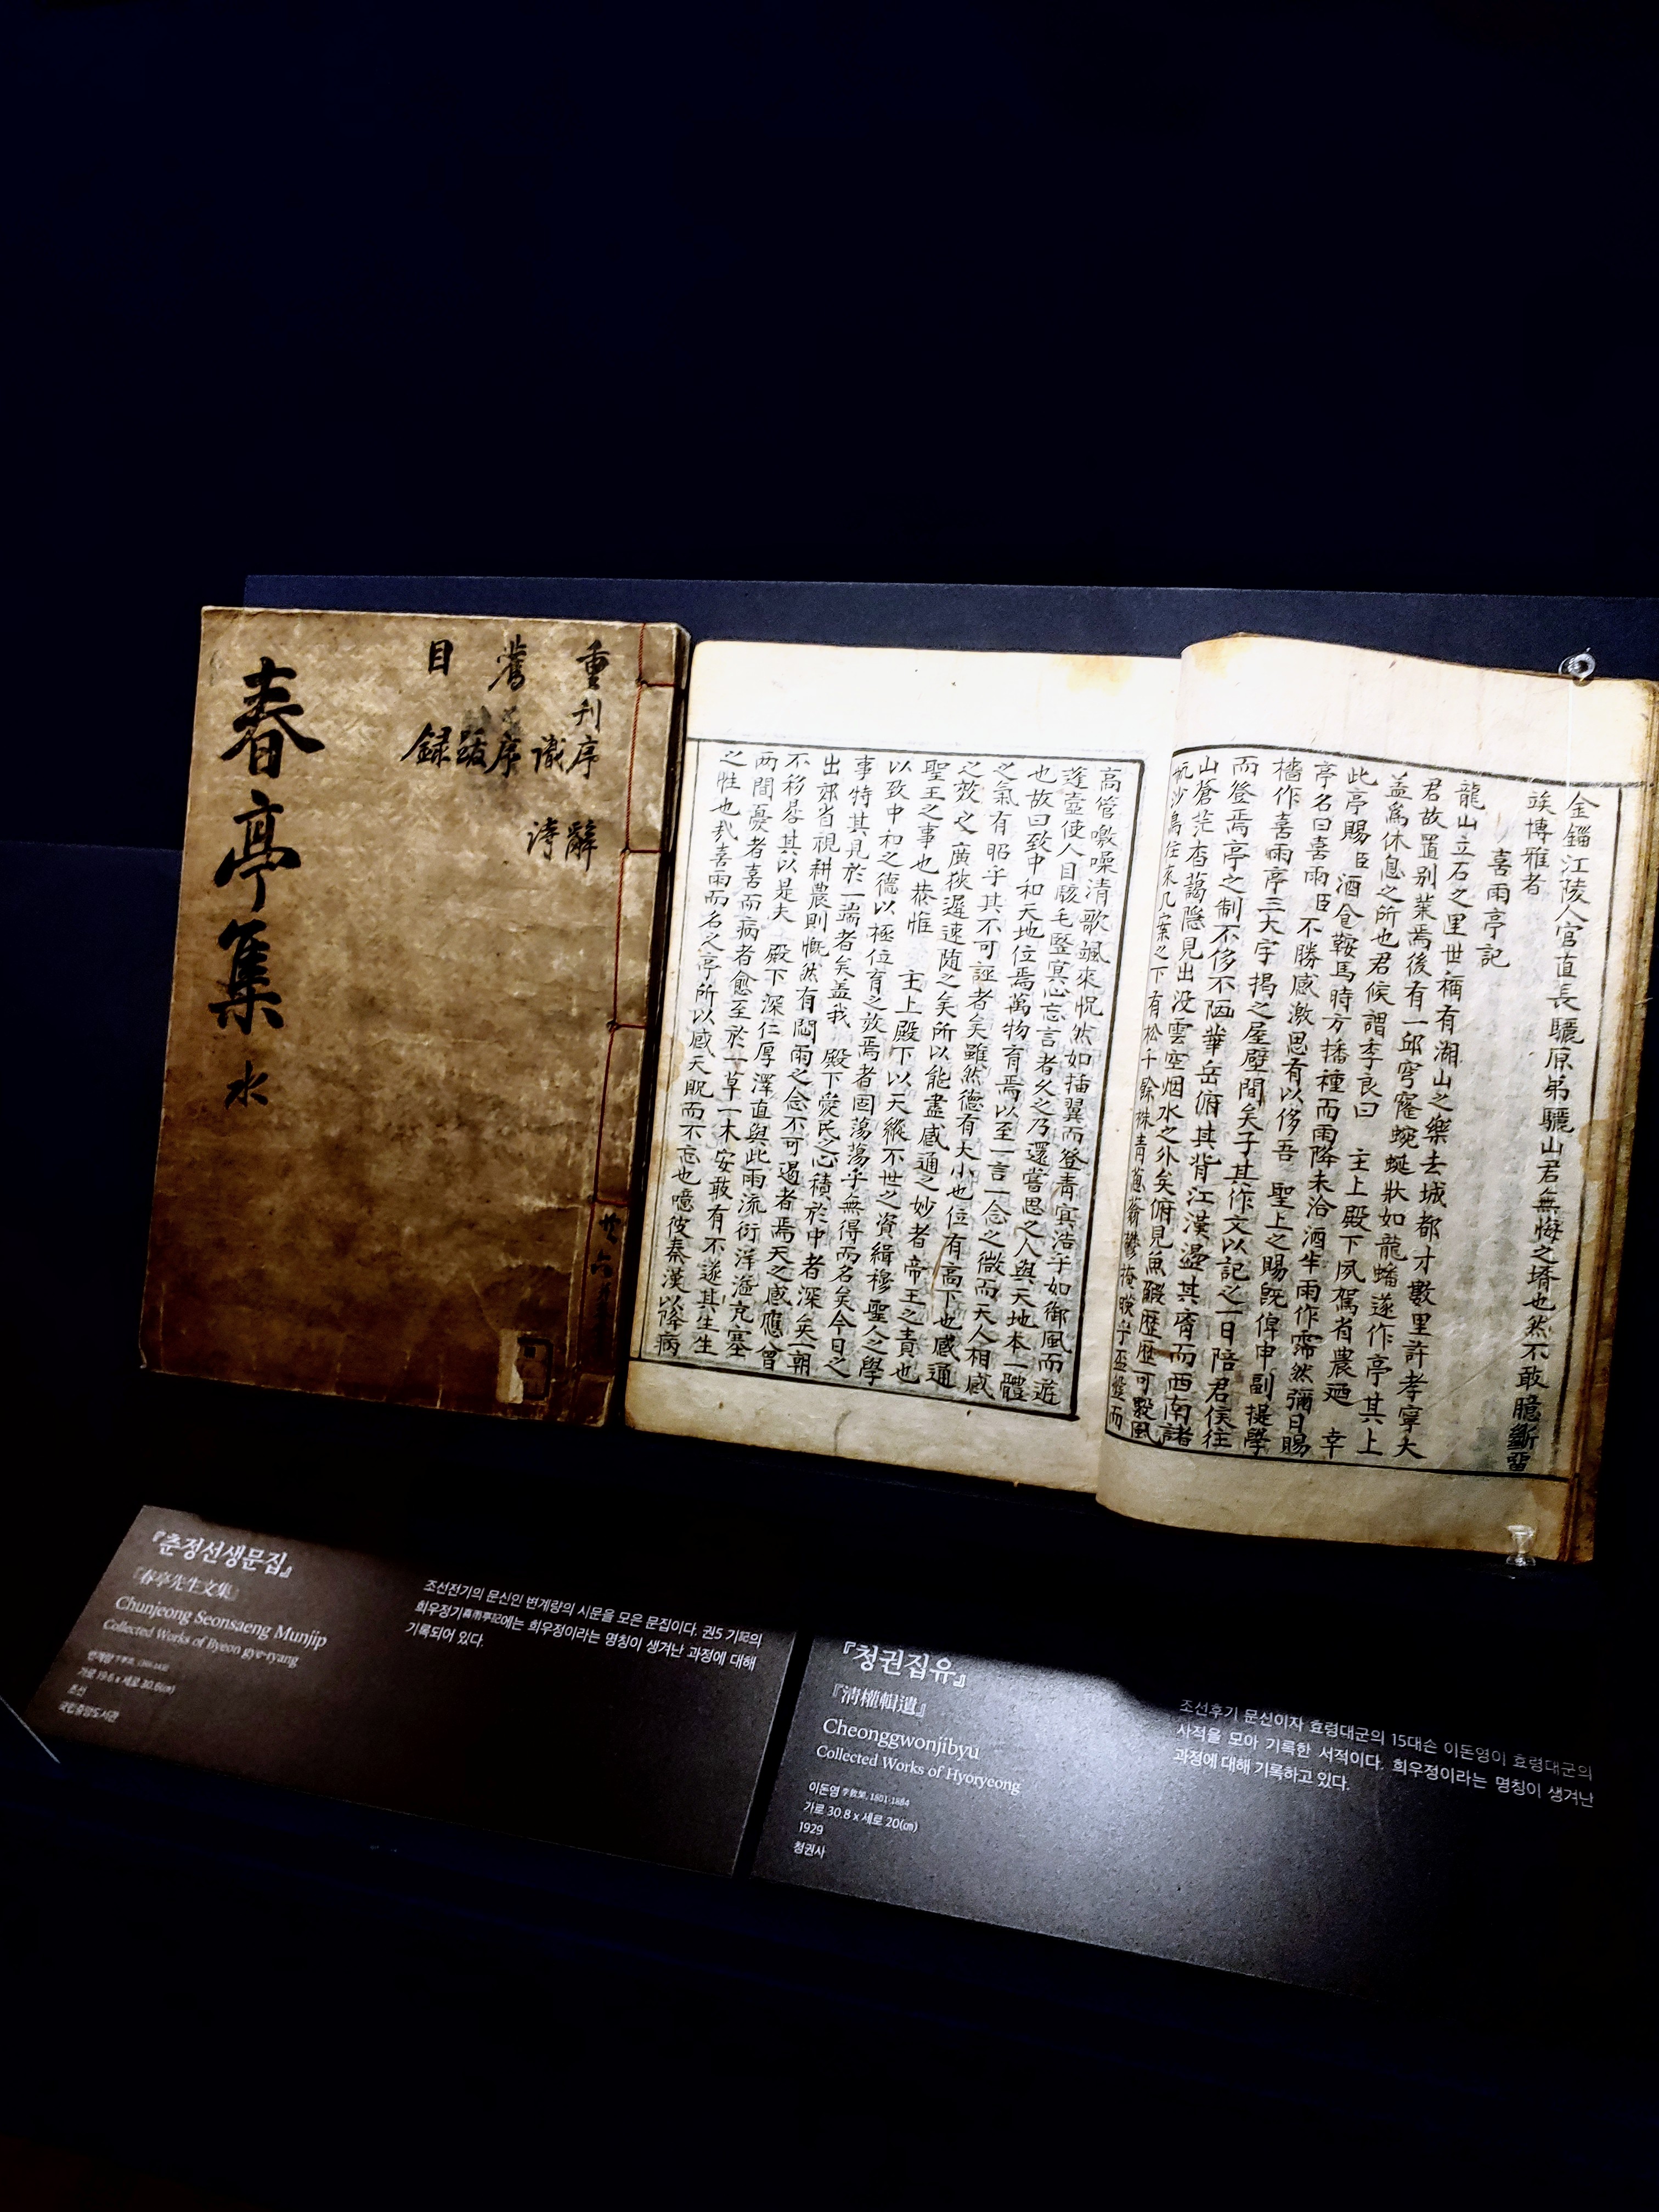 春亭集 水
重刊序 辭
識 詩
舊序
跋
目録
金錙江陵人官直長驪原弟驪山君無悔之壻也然不敢臆斷留
竢博雅者
喜雨亭記
龍山立石之里世稱有湖山之樂去城都才數里許孝寧大
君故置別業焉後有一邱穹窿蜿蜒狀如龍蟠遂作亭其上
益爲休息之所也君候謂李良曰 主上殿下夙駕省農廼 幸
此亭賜臣酒食鞍馬時方播種而雨降未洽酒半雨作霈然彌日賜
亭名曰喜雨臣 不勝感激思有以侈吾 聖上之賜旣俾申副提學
檣作喜雨亭三大字揭之屋壁間矣子其作文以記之一日陪君侯往
而登焉亭之制不侈不陋華岳俯其背江漢盪其脊而西南諸
山蒼茫杳藹隱見出没雲空烟水之外矣俯見魚鰕歷歷可數風
帆沙鳥往來几案之下有松千餘株青葱蓊鬱掩暎乎盃盤而
高管噭噪清歌颯來怳然如插翼而登靑冥浩乎如御風而遊
蓬壺使人目駭毛竪冥心忘言者久之乃還嘗思之人與天地本一體
也故曰致中和天地位焉萬物育焉以至一言一念之微而天人相感
之氣有昭乎其不可誣者矣雖然德有大小也位有高下也感通
之效之廣狹遲速随之矣所以能盡感通之妙者帝王之責也
聖王之事也恭惟 主上殿下以天縱不世之資緝穆聖人之學
以致中和之德以極位育之效焉者固蕩蕩乎無得而名矣今日之
事特其見於一端者矣盖我 殿下愛民之心積於中者深矣一朝
出郊省視耕農則慨然有悶雨之念不可遏者焉天之感應曾
不移晷其以是夫 殿下深仁厚澤直與此雨流衍洋溢充塞
两間憂者喜而病者愈至於一草一木安敢有不遂其生生
之性也哉喜雨而名之亭所以感天貺而不忘也噫彼秦漢以降病
『춘정선생문집』
『春亭先生文集』
Chunjeong Seonsaeng Munjip
Collected Works of Byeon gye-ryang
변계량
가로 19.6 x 세로 30.6(㎝)
조선
국립중앙도서관
조선전기의 문신인 변계량의 시문을 모은 문집이다. 권5 기記의
희우정기喜雨亭記에는 희우정이라는 명칭이 생겨난 과정에 대해
기록되어 있다.
『청권집유』
『淸權輯遺』
Cheonggwonjibyu
Collected Works of Hyoryeong
이돈영 李敦榮, 1801-1884
가로 30.8 x 세로 20(㎝)
1929
청권사
조선후기 문신이자 효령대군의 15대손 이돈영이 효령대군의
사적을 모아 기록한 서적이다. 희우정이라는 명칭이 생겨난
과정에 대해 기록하고 있다.